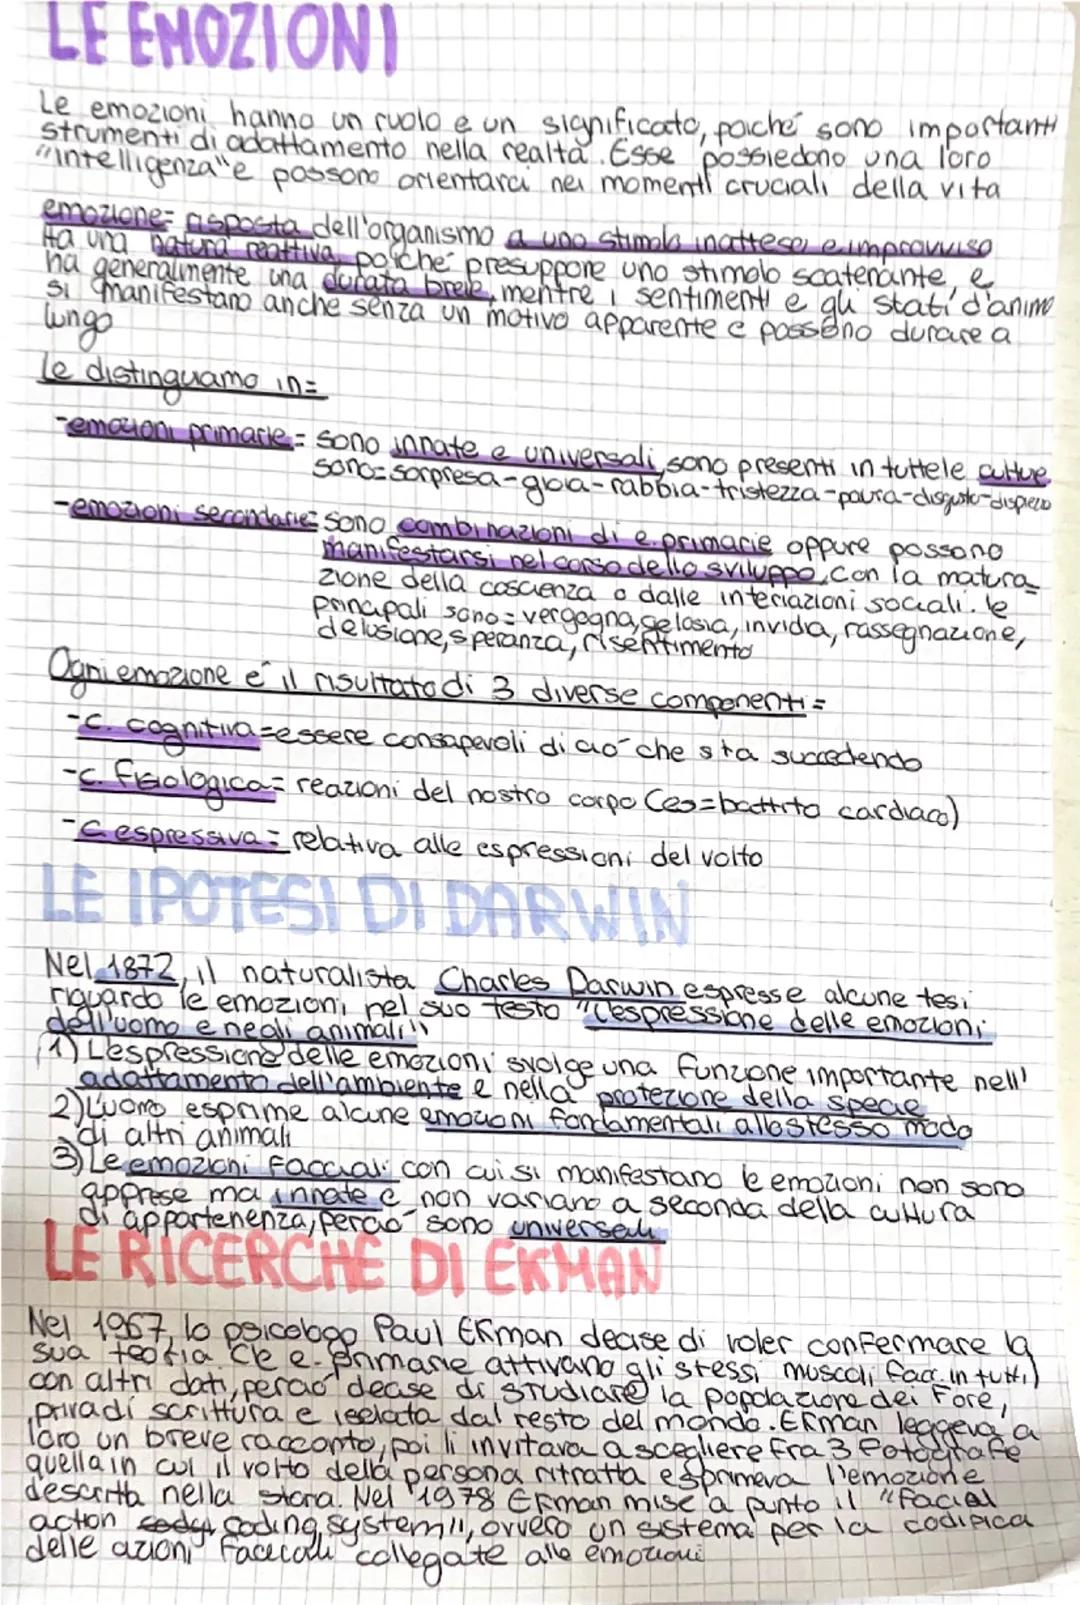 LE EMOZIONI
Le emozioni hanno un ruolo e un significato, poiché sono importanti
strumenti di adattamento nella realtà. Esse possiedono una loro
"intelligenza" e possono orientarci nei momenti cruciali della vita
emozione= risposta dell'organismo a uno stimolo inatteso e improvviso
Ha una natura reattiva, poiché presuppone uno stimolo scatenante, e
ha generalmente una durata breve, mentre i sentimenti e gli stati d'animo
si manifestano anche senza un motivo apparente e possono durare a
lungo
Le distinguamo in=
-emozioni primarie= sono innate e universali, sono presenti in tuttele culture
sono=sorpresa-gioia-rabbia-tristezza-paura-disgusto-disprezzo
-emozioni secondarie= sono combinazioni di e.primarie oppure possono
manifestarsi nel corso dello sviluppo, con la matura-
zione della coscienza o dalle interiazioni sociali. le
principali sono= vergogna, gelosia, invidia, rassegnazione,
delusione, speranza, risentimento
Ogni emozione è il risultato di 3 diverse componenti=
-c. cognitiva=essere consapevoli di ciò che sta succedendo
-c. fisiologica= reazioni del nostro corpo (es=battito cardiaco)
-c.espressiva= relativa alle espressioni del volto
LE IPOTESI DI DARWIN
Nel 1872, il naturalista Charles Darwin espresse alcune tesi
riguardo le emozioni, nel suo testo "L'espressione delle emozioni
dell'uomo e negli animali"
1) L'espressione delle emozioni svolge una funzione importante nell'
adattamento dell'ambiente e nella protezione della specie
2) L'uomo esprime alcune emozioni fondamentali allo stesso modo
di altri animali
3) Le emozioni facciali con cui si manifestano le emozioni non sono
apprese ma innate e non variano a seconda della cultura
di appartenenza, perciò sono universali
LE RICERCHE DI EKMAN
Nel 1967, lo psicologo Paul Ekman decise di voler confermare la
sua teoria (le e. primarie attivano gli stessi muscoli facc. in tutti)
con altri dati, perciò decise di studiare la popolazione dei Fore,
priva di scrittura e isolata dal resto del mondo. Ekman leggeva a
loro un breve racconto, poi li invitava a scegliere fra 3 fotografie
quella in cui il volto della persona ritratta esprimeva l'emozione
descritta nella storia. Nel 1978 Ekman mise a punto il "facial
action coding system", ovvero un sistema per la codifica
delle azioni facciali collegate alle emozioni